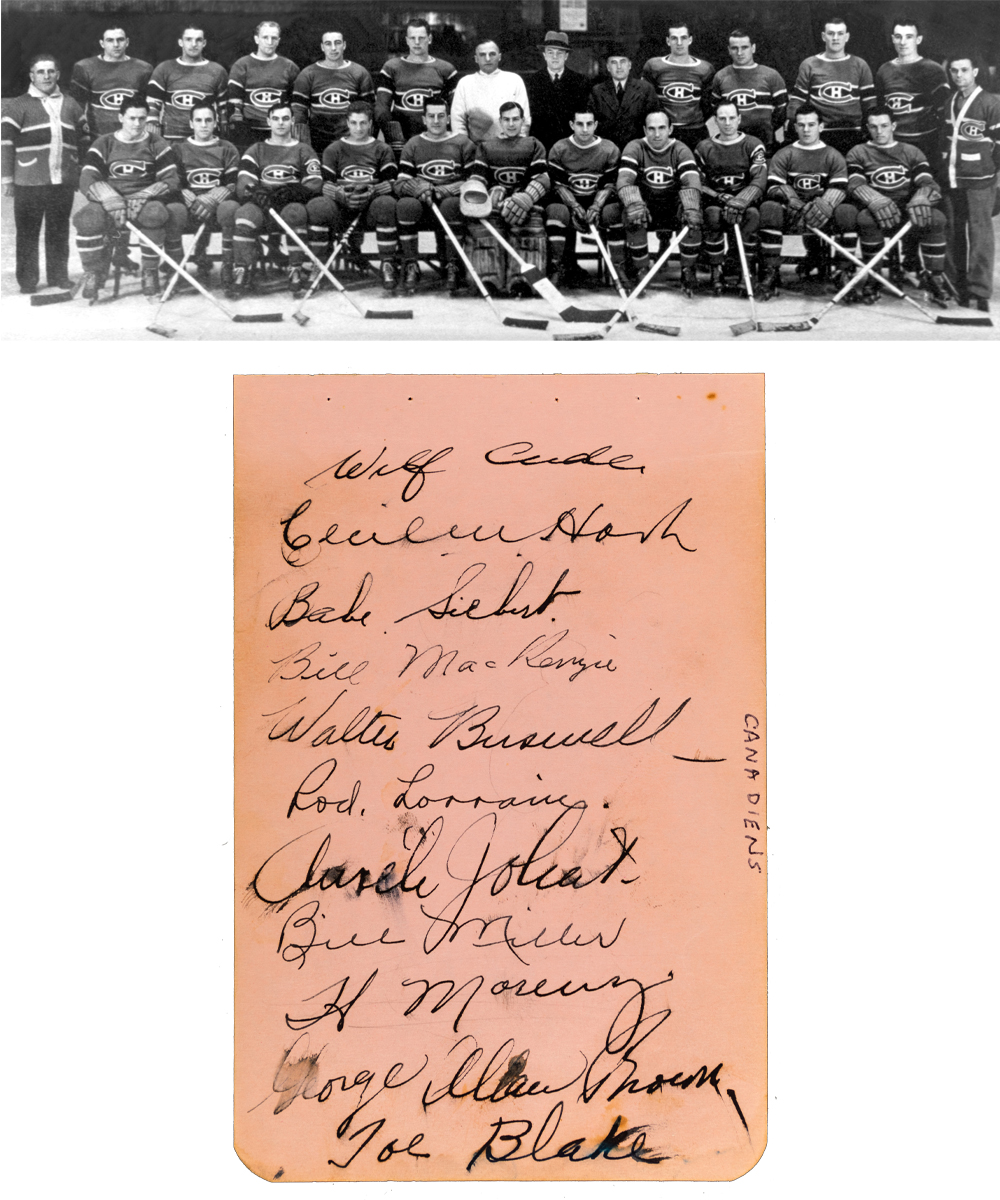 Wilf Cude.
Cecil M Hart
Babe Siebert.
Bill MacKenzie
Walter Buswell
Rod. Lorrain.
Aurèle Joliat.
Bill Miller
H Morenz
George Allan Brown,
Toe Blake
CANADIENS